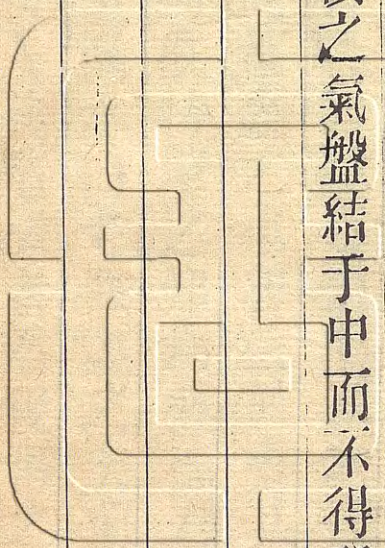 之氣盤結于中而不得